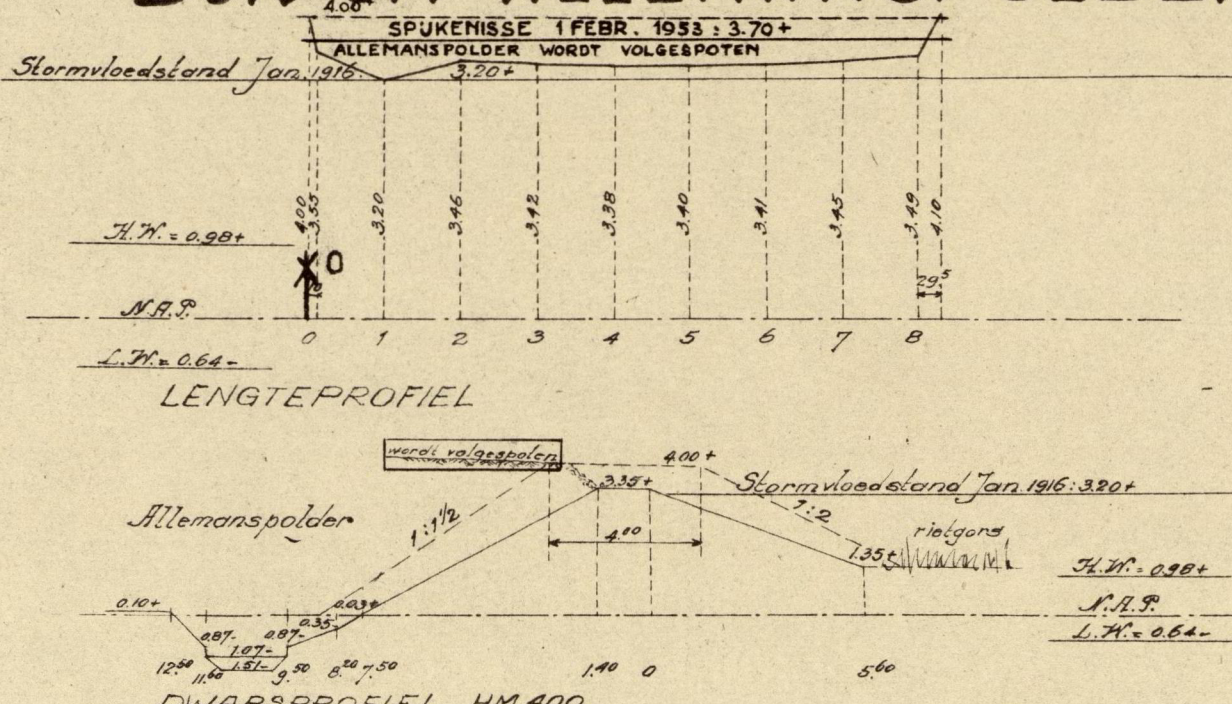 4.00
SPIJKENISSE 1 FEBR. 1953 : 3.70+
ALLEMANSPOLDER WORDT VOLGESPOTEN
Stormvloedstand Jan. 1916: 3.20+
4.00 3.55 3.20 3.46 3.42 3.38 3.40 3.41 3.45 3.49 4.10
H.W. = 0.98+
0
29.5
N.A.P.
0 1 2 3 4 5 6 7 8
L.W. = 0.64-
LENGTEPROFIEL
wordt volgespoten
4.00+
3.35+
Stormvloedstand Jan. 1916: 3.20+
Allemanspolder
1:1½
1:2
4.00
rietgors
1.35+
H.W. = 0.98+
0.10+
0.03+
N.A.P.
0.35-
0.87- 0.87-
L.W. = 0.64-
1.07-
1.51-
12.50 11.60 9.50 8.20 7.50 1.40 0 5.60
DWARSPROFIEL HM 400